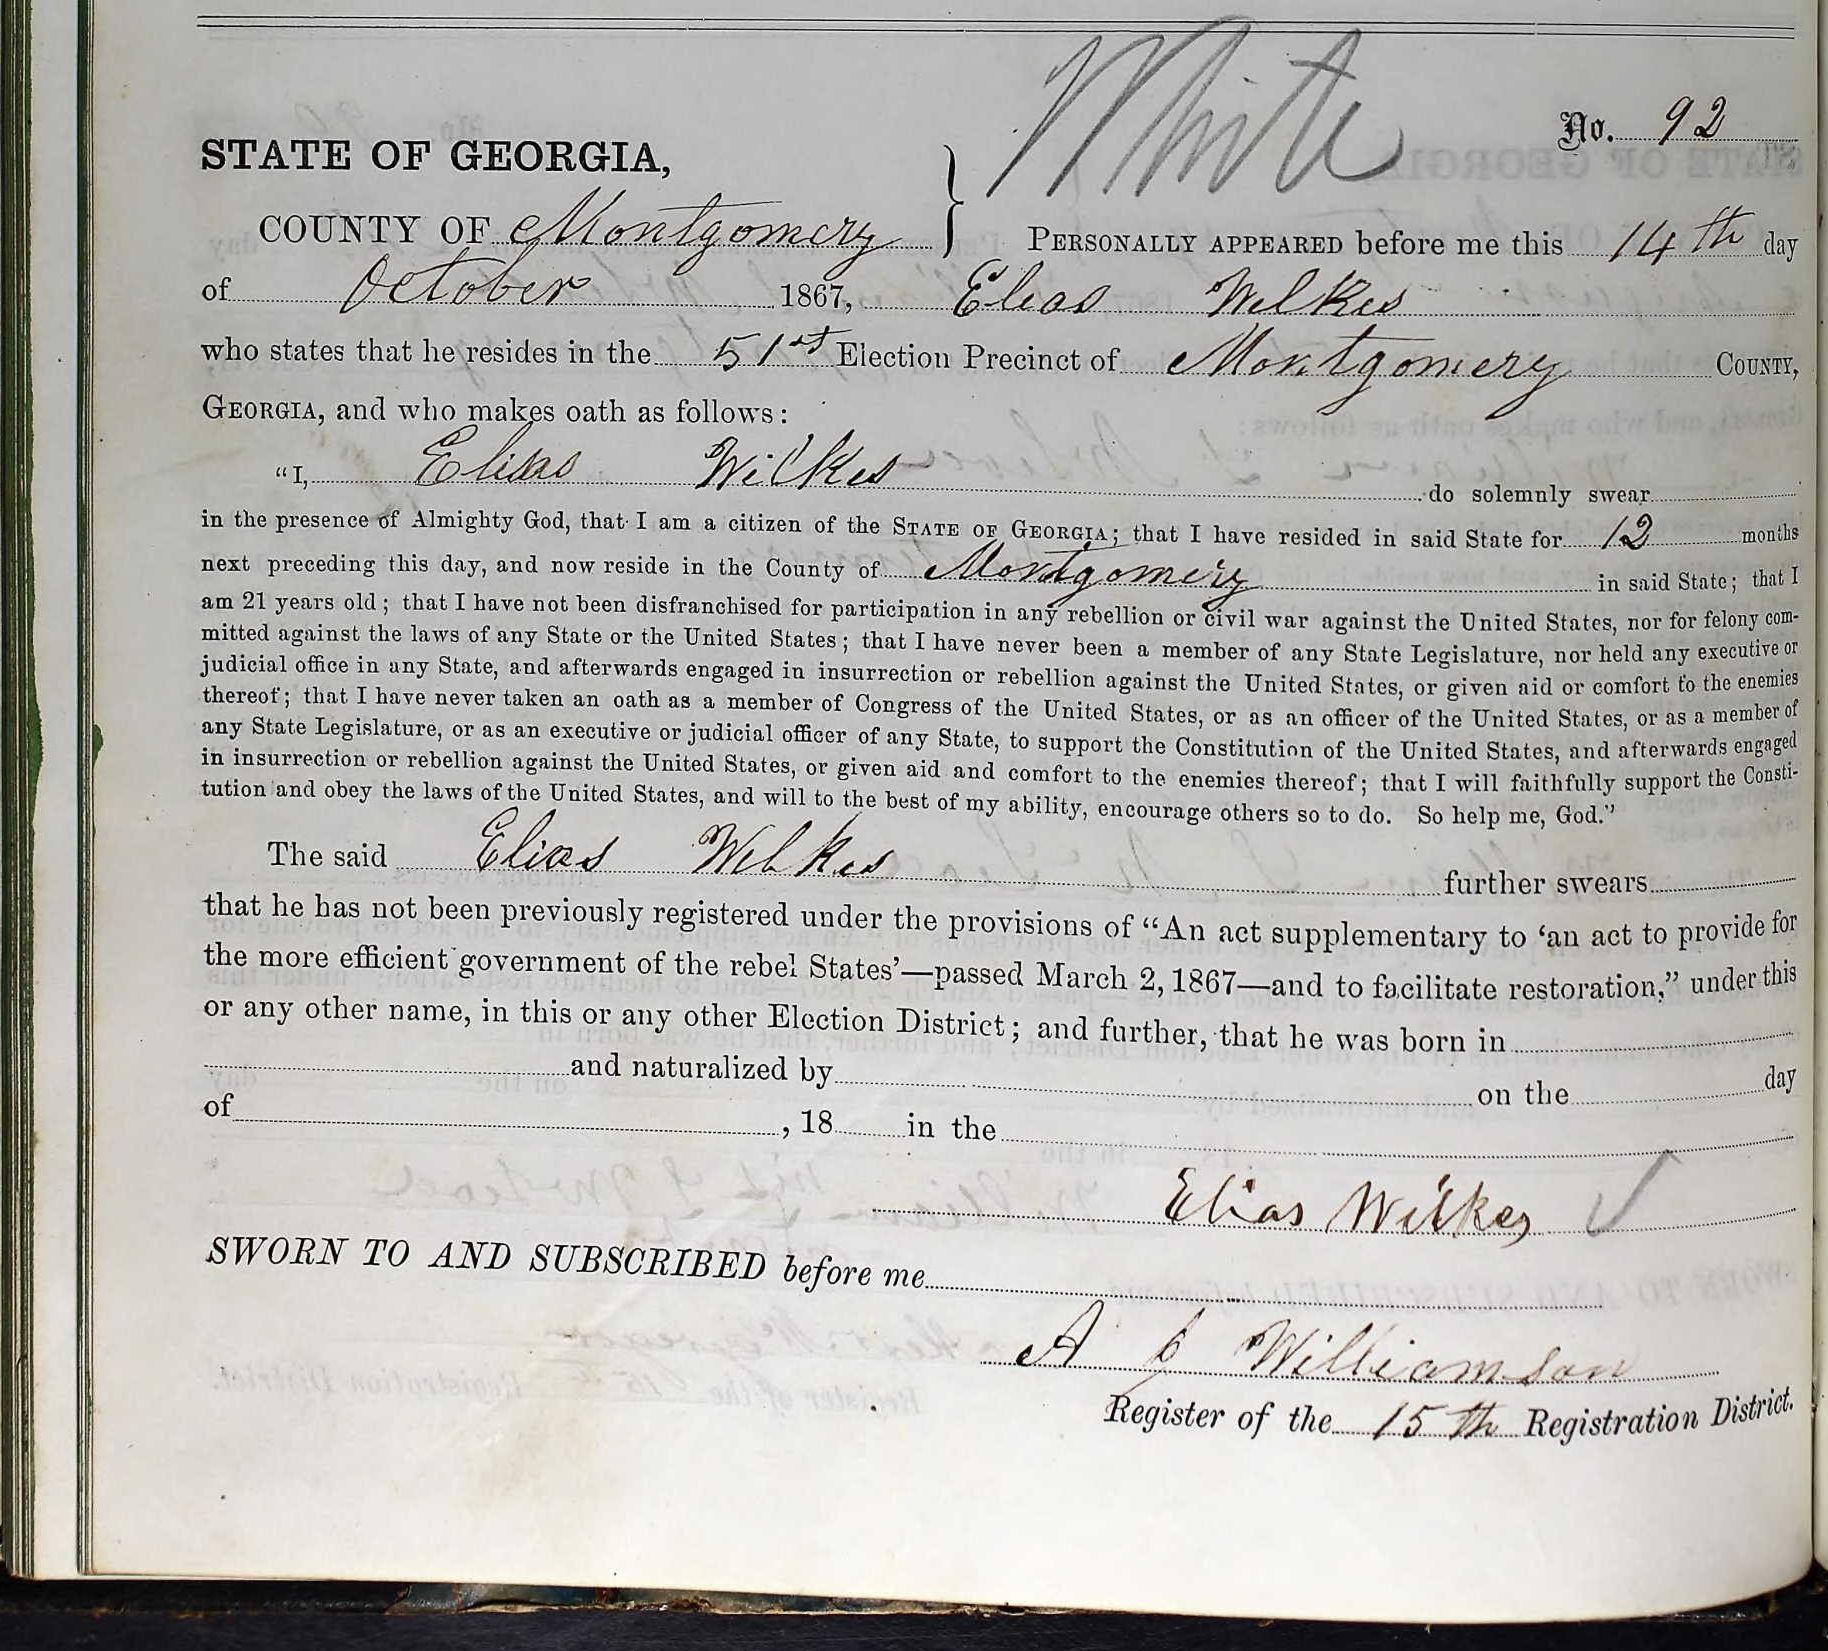 White
No. 92
STATE OF GEORGIA,
COUNTY OF Montgomery } PERSONALLY APPEARED before me this 14th day
of October 1867, Elias Wilkes
who states that he resides in the 51st Election Precinct of Montgomery COUNTY,
GEORGIA, and who makes oath as follows:
"I, Elias Wilkes do solemnly swear
in the presence of Almighty God, that I am a citizen of the STATE OF GEORGIA; that I have resided in said State for 12 months
next preceding this day, and now reside in the County of Montgomery in said State; that I
am 21 years old; that I have not been disfranchised for participation in any rebellion or civil war against the United States, nor for felony com-
mitted against the laws of any State or the United States; that I have never been a member of any State Legislature, nor held any executive or
judicial office in any State, and afterwards engaged in insurrection or rebellion against the United States, or given aid or comfort to the enemies
thereof; that I have never taken an oath as a member of Congress of the United States, or as an officer of the United States, or as a member of
any State Legislature, or as an executive or judicial officer of any State, to support the Constitution of the United States, and afterwards engaged
in insurrection or rebellion against the United States, or given aid and comfort to the enemies thereof; that I will faithfully support the Consti-
tution and obey the laws of the United States, and will to the best of my ability, encourage others so to do. So help me, God."
The said Elias Wilkes further swears
that he has not been previously registered under the provisions of "An act supplementary to 'an act to provide for
the more efficient government of the rebel States'—passed March 2, 1867—and to facilitate restoration," under this
or any other name, in this or any other Election District; and further, that he was born in
and naturalized by on the day
of , 18 in the
Elias Wilkes ✓
SWORN TO AND SUBSCRIBED before me
A J Williamson
Register of the 15th Registration District.